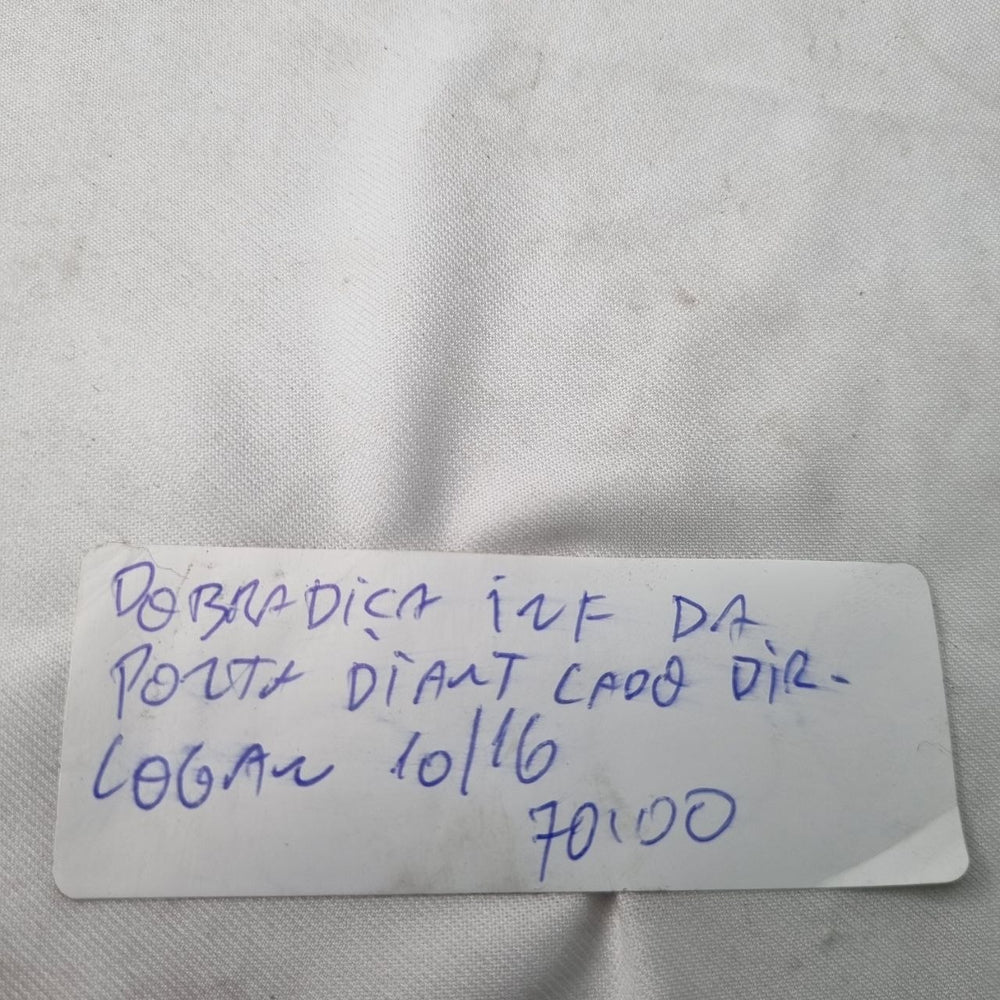 DOBRADIÇA INF DA
PORTA DIANT LADO DIR-
LOGAN 10/16
70,00